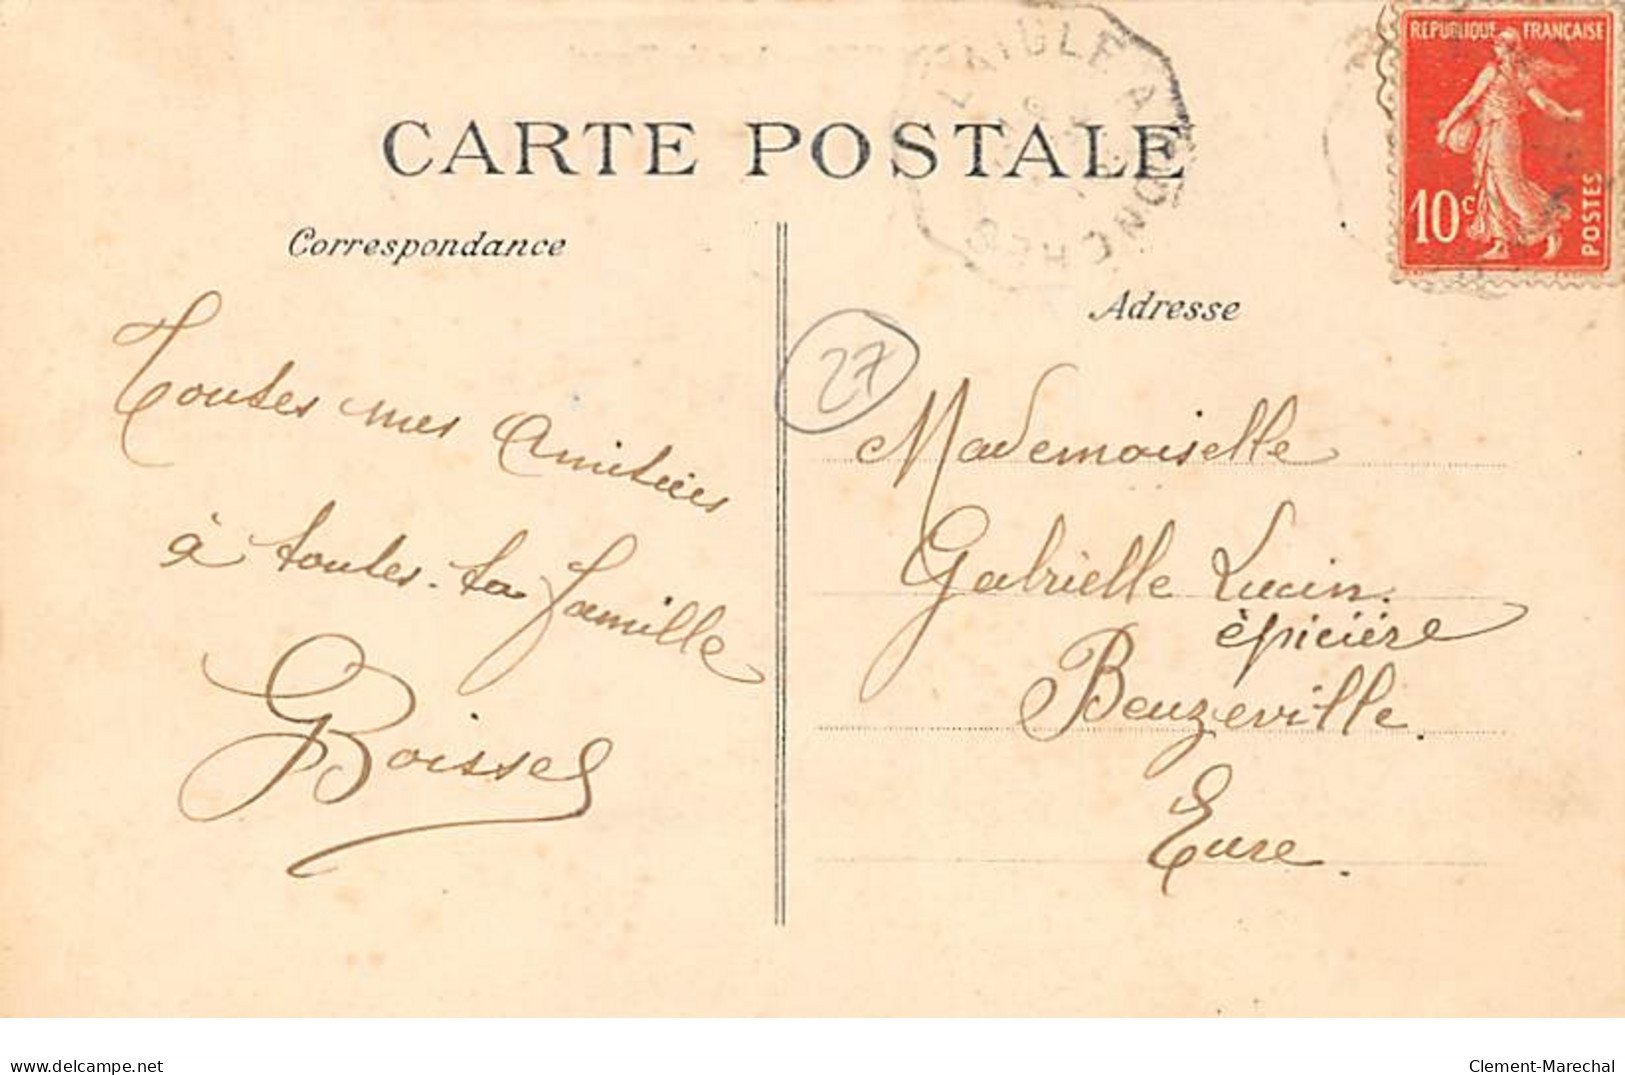 CARTE POSTALE
Correspondance
Toutes mes Amitiées
à toutes ta famille
GBoissel
L'AIGLE A CONCHES
REPUBLIQUE FRANÇAISE
10c
POSTES
Adresse
27
Mademoiselle
Gabrielle Lucin.
èpicière
Beuzeville.
Eure.
delcampe.net
Clement-Marechal